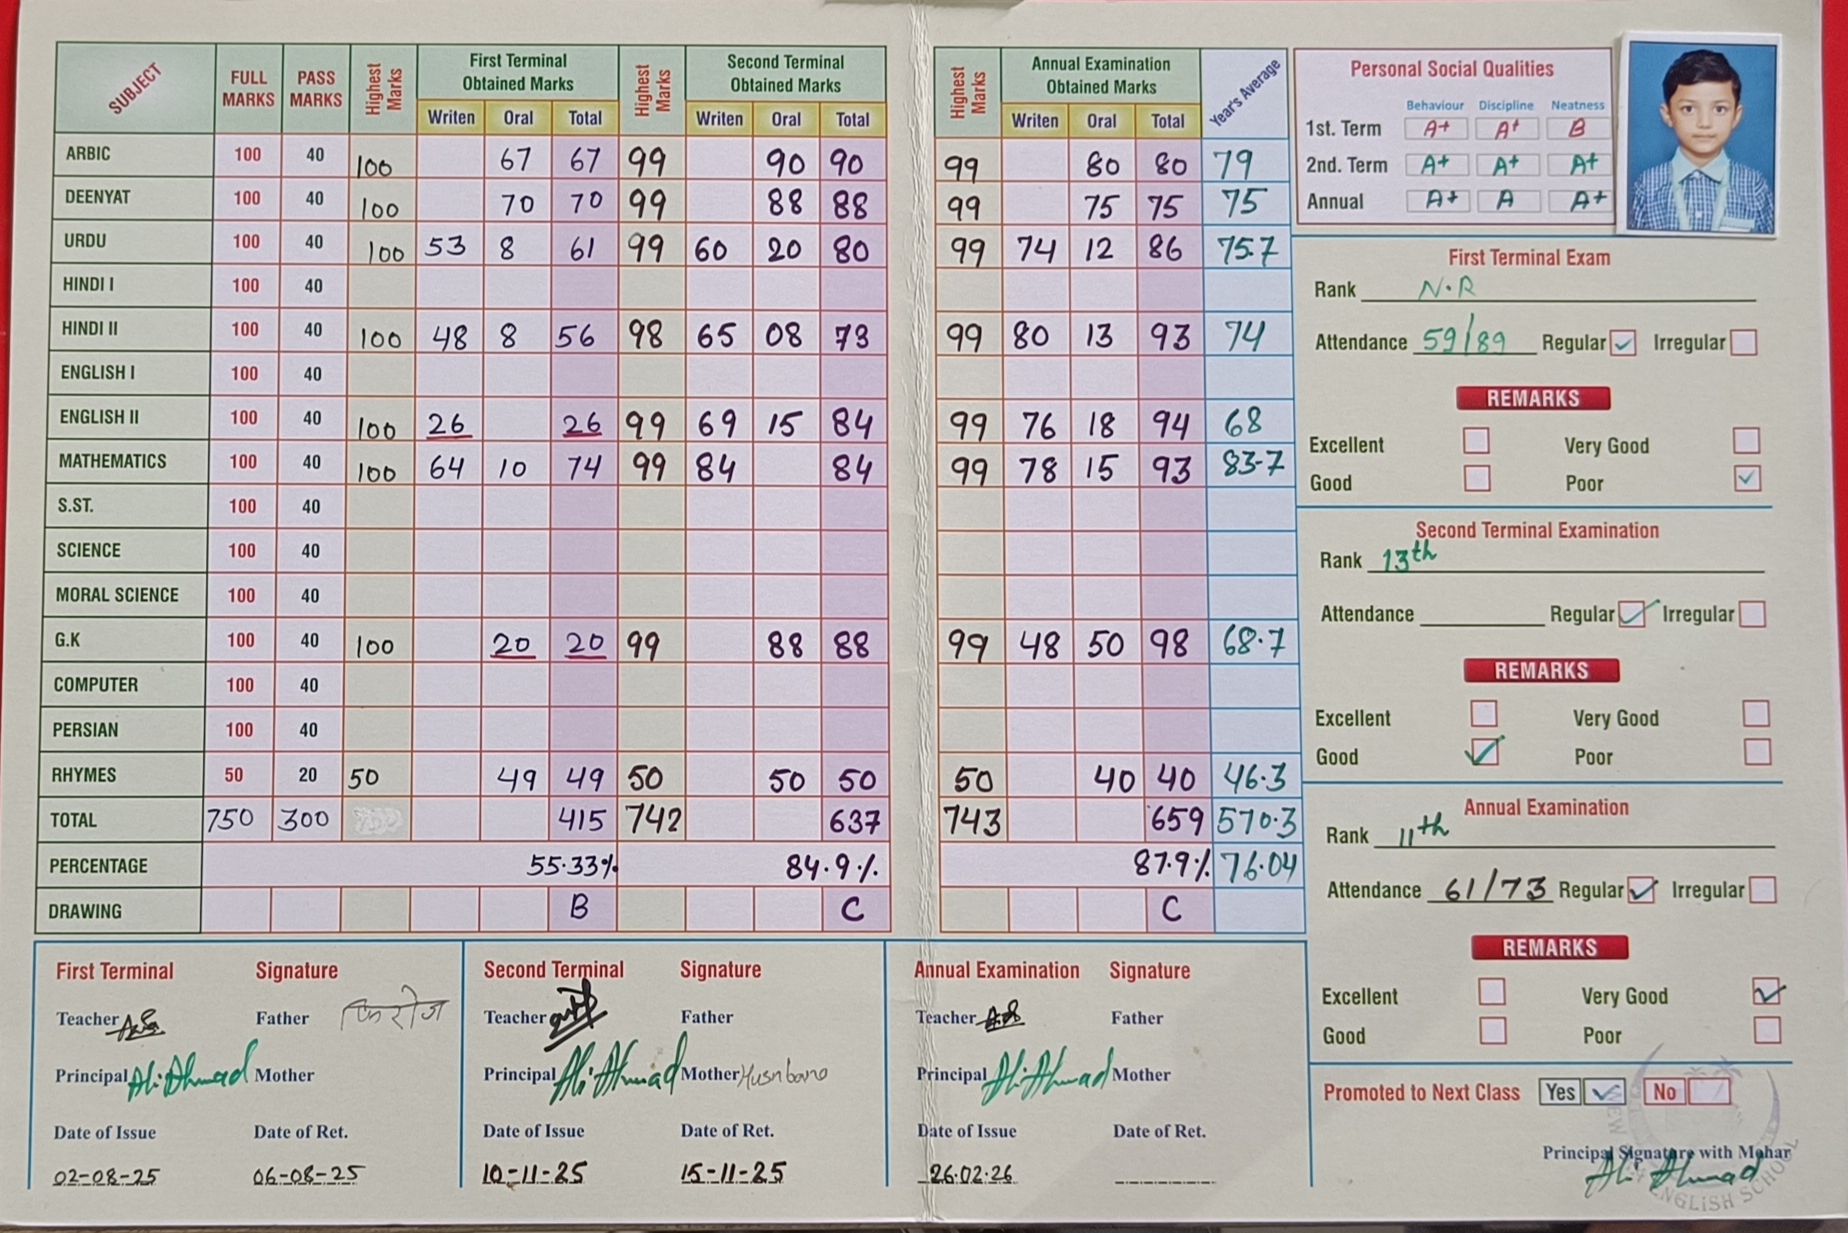 SUBJECT FULL MARKS PASS MARKS Highest Marks First Terminal Obtained Marks Highest Marks Second Terminal Obtained Marks
Writen Oral Total Writen Oral Total
ARBIC 100 40 100 67 67 99 90 90
DEENYAT 100 40 100 70 70 99 88 88
URDU 100 40 100 53 8 61 99 60 20 80
HINDI I 100 40
HINDI II 100 40 100 48 8 56 98 65 08 73
ENGLISH I 100 40
ENGLISH II 100 40 100 26 26 99 69 15 84
MATHEMATICS 100 40 100 64 10 74 99 84 84
S.ST. 100 40
SCIENCE 100 40
MORAL SCIENCE 100 40
G.K 100 40 100 20 20 99 88 88
COMPUTER 100 40
PERSIAN 100 40
RHYMES 50 20 50 49 49 50 50 50
TOTAL 750 300 415 742 637
PERCENTAGE 55.33% 84.9%
DRAWING B C
Highest Marks Annual Examination Obtained Marks Year's Average
Writen Oral Total
99 80 80 79
99 75 75 75
99 74 12 86 75.7
99 80 13 93 74
99 76 18 94 68
99 78 15 93 83.7
99 48 50 98 68.7
50 40 40 46.3
743 659 570.3
87.9% 76.04
C
Personal Social Qualities
Behaviour Discipline Neatness
1st. Term A+ A+ B
2nd. Term A+ A+ A+
Annual A+ A A+
First Terminal Exam
Rank N.R
Attendance 59/89 Regular Irregular
REMARKS
Excellent Very Good
Good Poor
Second Terminal Examination
Rank 13th
Attendance Regular Irregular
REMARKS
Excellent Very Good
Good Poor
Annual Examination
Rank 11th
Attendance 61/73 Regular Irregular
REMARKS
Excellent Very Good
Good Poor
Promoted to Next Class Yes No
Principal Signature with Mohar
Ali Ahmad
NEW ENGLISH SCHOOL
First Terminal Signature
Teacher Father फिरोज
Principal Ali Ahmad Mother
Date of Issue Date of Ret.
02-08-25 06-08-25
Second Terminal Signature
Teacher Father
Principal Ali Ahmad Mother Husnbano
Date of Issue Date of Ret.
10-11-25 15-11-25
Annual Examination Signature
Teacher Father
Principal Ali Ahmad Mother
Date of Issue Date of Ret.
26.02.26